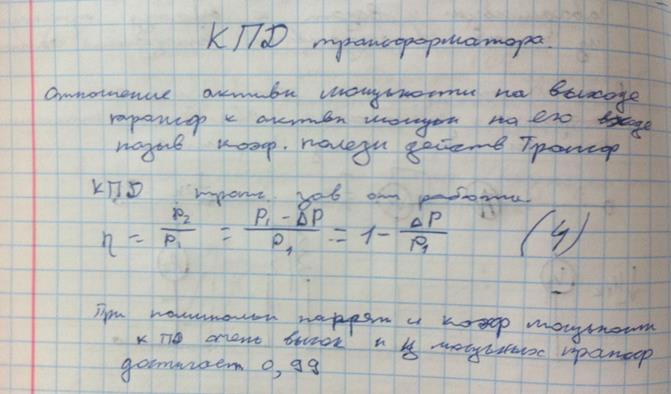 КПД трансформатора.
Отношение активн мощьности на выходе
трансф к активн мощьн на его входе
назыв коэф. полезн действ Трансф
КПД транс. зав от работы.
η = P₂/P₁ = P₁ - ΔP/P₁ = 1 - ΔP/P₁ (4)
При номинальн напряж и коэф мощьности
КПД очень высок и мощьных трансф
достигает 0,99